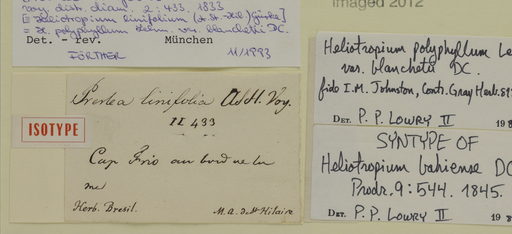 Imaged 2012
voy. distr. diam. 2: 433. 1833
[≡ Heliotropium linifolium (A. St.-Hil.) Gürke]
= H. polyphyllum Lehm. var. blanchetii DC.
Det. - rev. München
FÖRTHER 11/1993
ISOTYPE
Preslea linifolia A. St. H. Voy.
II 433
Cap Frio au bord de la
mer
Herb. Bresil. M. A. de St Hilaire
Heliotropium polyphyllum Le
var. blanchetii DC.
fide I.M. Johnston, Contr. Gray Herb. 81
DET. P. P. LOWRY II 198
SYNTYPE OF
Heliotropium bahiense DC
Prodr. 9: 544. 1845.
DET. P. P. LOWRY II 198